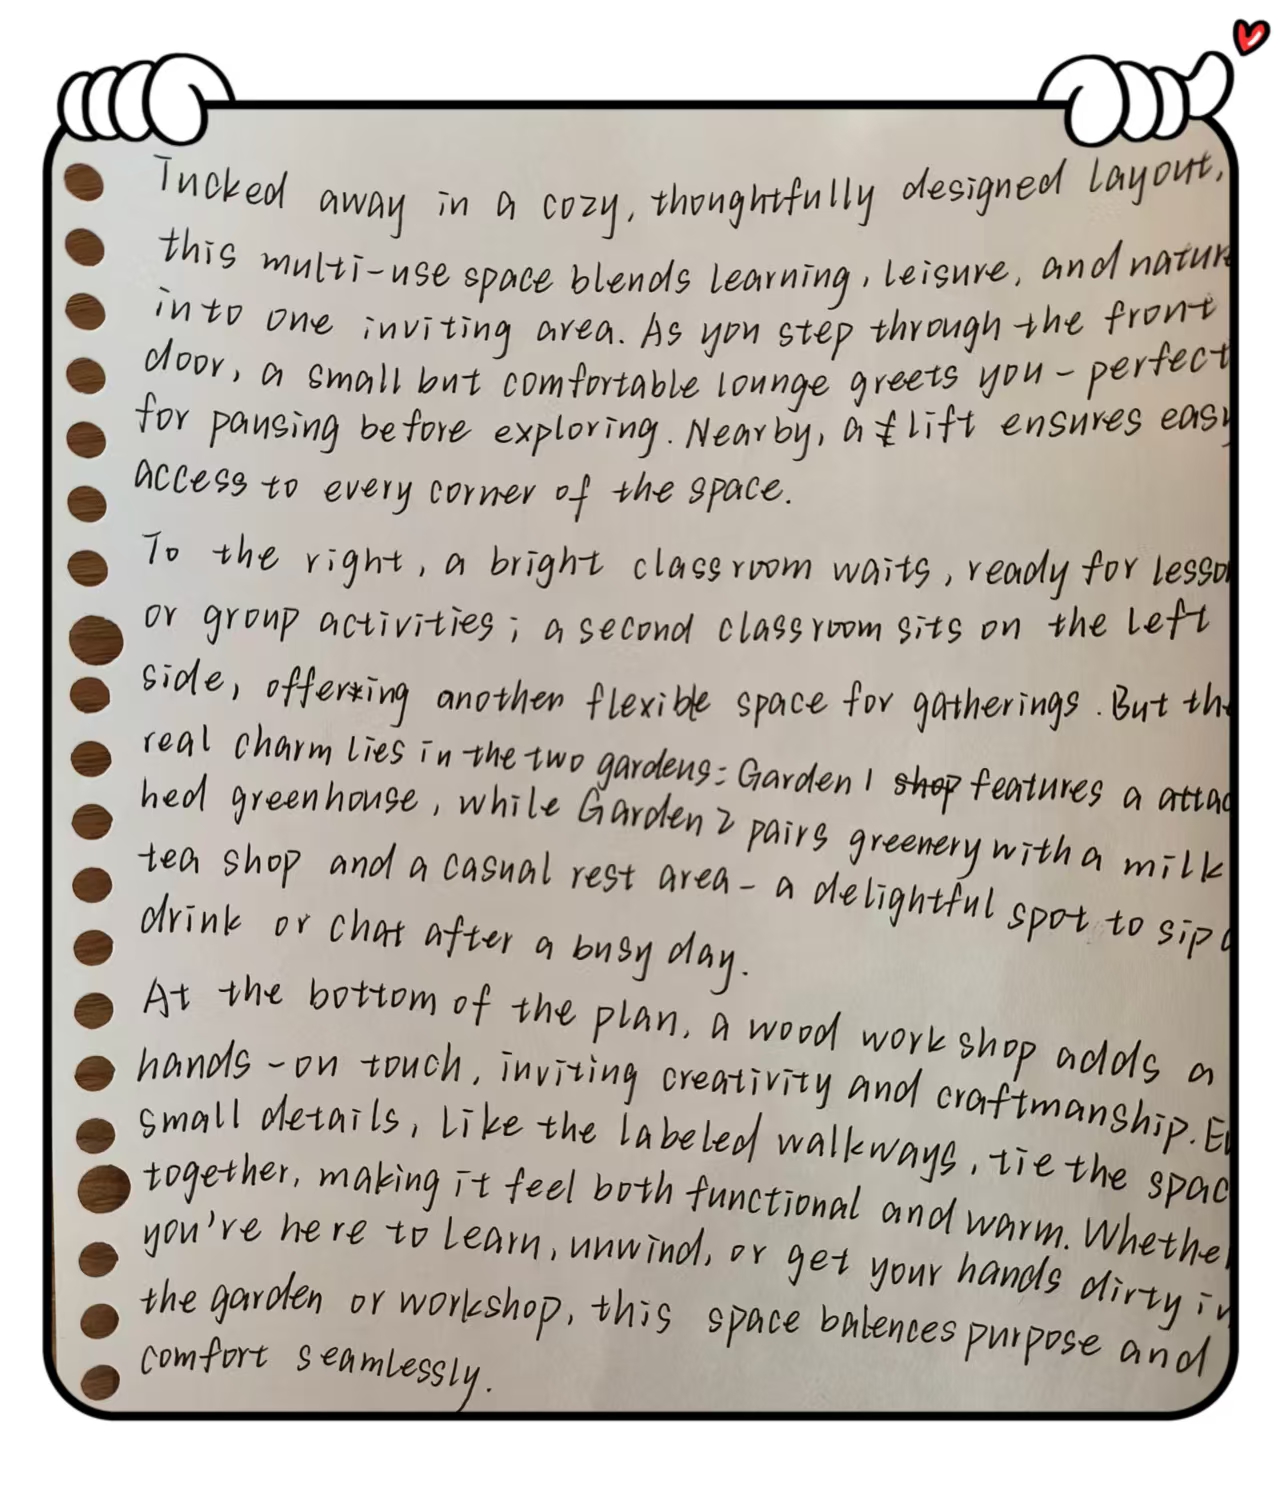 Tucked away in a cozy, thoughtfully designed layout,
this multi-use space blends learning, leisure, and natur
into one inviting area. As you step through the front
door, a small but comfortable lounge greets you - perfect
for pausing before exploring. Nearby, a lift ensures easy
access to every corner of the space.
To the right, a bright classroom waits, ready for lesso
or group activities; a second classroom sits on the left
side, offering another flexible space for gatherings. But th
real charm lies in the two gardens: Garden 1 shop features a attac
hed greenhouse, while Garden 2 pairs greenery with a milk
tea shop and a casual rest area - a delightful spot to sip
drink or chat after a busy day.
At the bottom of the plan, a wood work shop adds a
hands-on touch, inviting creativity and craftmanship. E
small details, like the labeled walkways, tie the spac
together, making it feel both functional and warm. Whethe
you're here to learn, unwind, or get your hands dirty i
the garden or workshop, this space balences purpose and
comfort seamlessly.